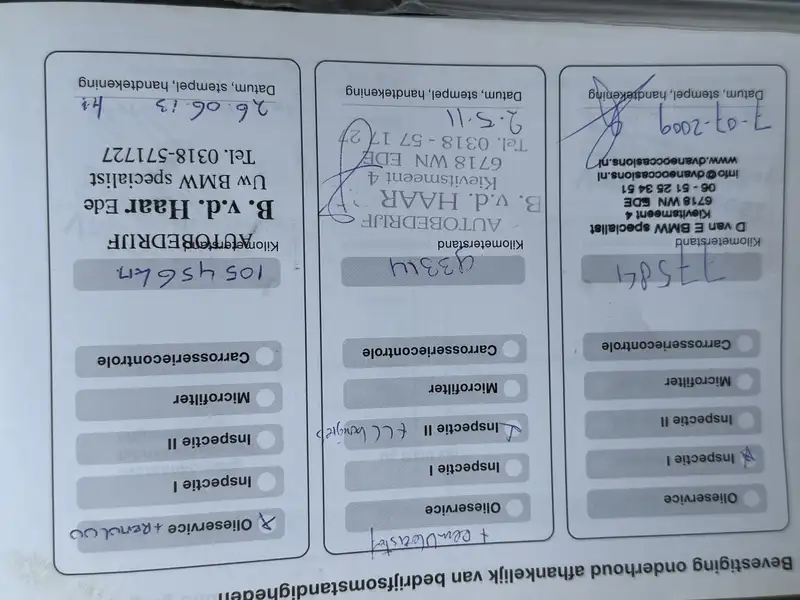 Bevestiging onderhoud afhankelijk van bedrijfsomstandigheden
Olieservice
Inspectie I
Inspectie II
Microfilter
Carrosseriecontrole
77584
Kilometerstand
D van E BMW specialist
Kievitsmeent 4
6718 WN EDE
06 - 51 25 34 51
info@dvaneoccasions.nl
www.dvaneoccasions.nl
7-07-2009
Datum, stempel, handtekening
+ remvloeistof
Olieservice
Inspectie I
Inspectie II
Microfilter
Carrosseriecontrole
Kilometerstand
AUTOBEDRIJF
B. v.d. HAAR
Kievitsmeent 4
6718 WN EDE
Tel. 0318 - 57 17 27
2.5.11
Datum, stempel, handtekening
Olieservice +
Inspectie I
Inspectie II
Microfilter
Carrosseriecontrole
105456 km
Kilometerstand
AUTOBEDRIJF
B. v.d. Haar Ede
Uw BMW specialist
Tel. 0318-571727
26.06.13
Datum, stempel, handtekening